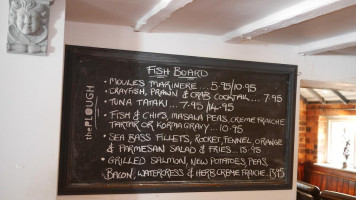 FISH BOARD
• MOULES MARINERE ... 5.95/10.95
• CRAYFISH, PRAWN & CRAB COCKTAIL ... 7.95
• TUNA TATAKI ... 7.95/14.95
• FISH & CHIPS, MASALA PEAS, CREME FRAICHE
TARTAR OR KORMA GRAVY ... 10.95
• SEA BASS FILLETS, ROCKET, FENNEL, ORANGE
& PARMESAN SALAD & FRIES ... 15.95
• GRILLED SALMON, NEW POTATOES, PEAS,
BACON, WATERCRESS & HERB CREME FRAICHE . 13.95
the PLOUGH